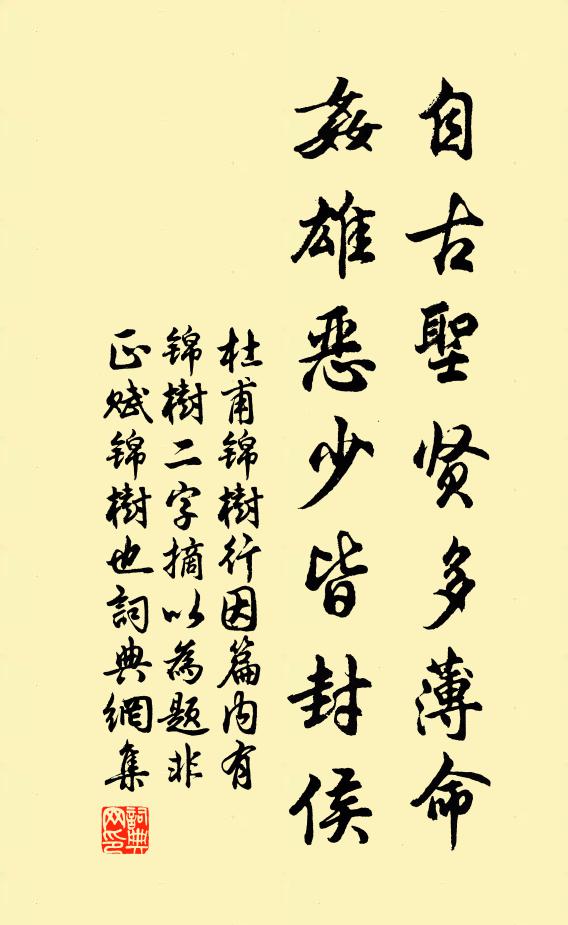 自古聖贤多薄命
姦雄恶少皆封侯
杜甫锦樹行因篇内有
锦樹二字摘以為题非
正赋锦樹也詞典網集
詞典
网印